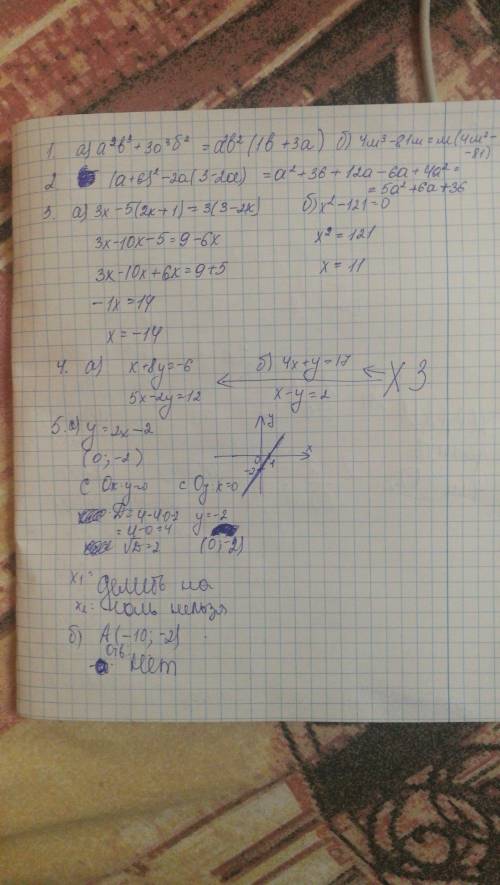 1. а) a²b² + 3a³b² = a²b² (1b + 3a) б) 4м³ - 81м = м(4м² - 81)
2 (a+6)² - 2a(3-2a) = a² + 36 + 12a - 6a + 4a² =
= 5a² + 6a + 36
3. а) 3x - 5(2x+1) = 3(3-2x) б) x² - 121 = 0
3x - 10x - 5 = 9 - 6x x² = 121
3x - 10x + 6x = 9 + 5 x = 11
-1x = 14
x = -14
4. а) x + 8y = -6 б) 4x + y = 17 ХЗ
5x - 2y = 12 x - y = 2
5. а) y = 2x - 2 y
(0; -2) x
с Ox y=0 с Oy x=0 0 1 -2
D = 4 - 4·0·2 y = -2
= 4 - 0 = 4
√D = 2 (0; -2)
x₁= делить на
x₂= ноль нельзя
б) A(-10; -2)
Отв.
Нет